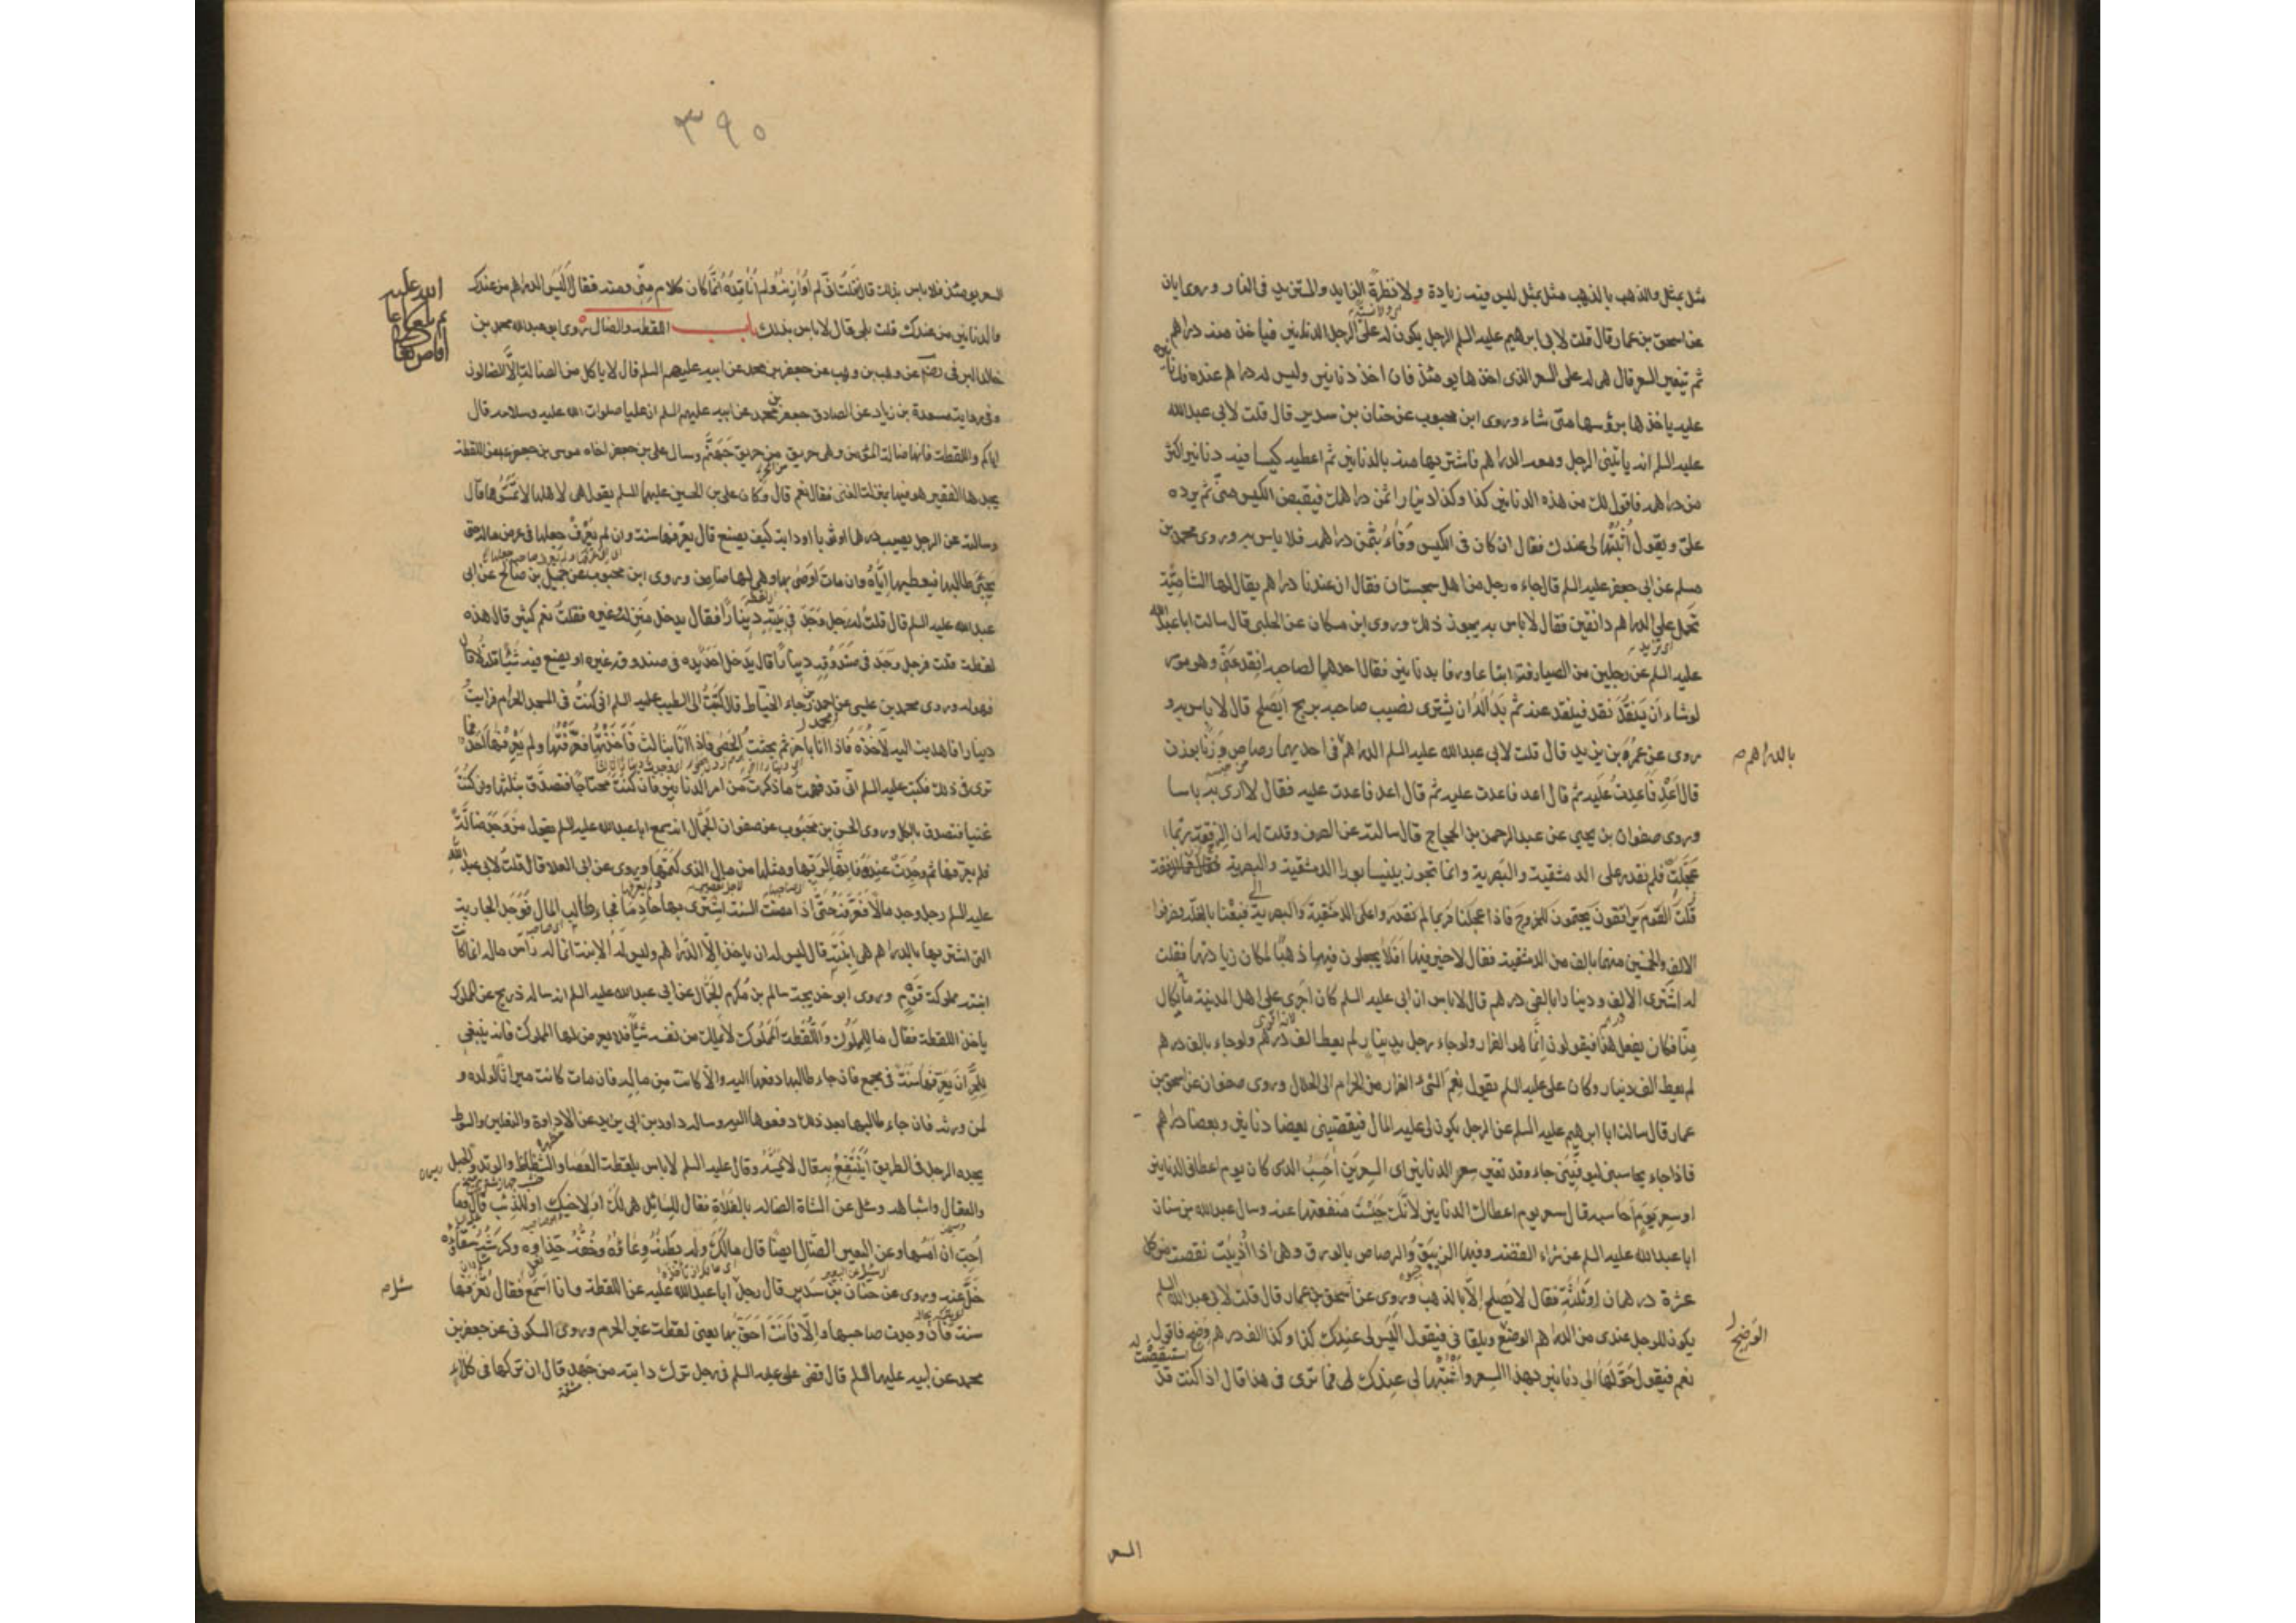 مثل بمثل والذهب بالذهب مثل بمثل ليس فيه زيادة ولا نظرة الزايد والمستزيد في النار وروى ابان
عن اسحق بن عمار قال قلت لابي ابرهيم عليه السلم الرجل يكون له على الرجل الدنانير فياخذ منه دراهم
ثم تيغير السعر قال هي له على السعر الذي اخذها يومئذ فان اخذ دنانير وليس له دراهم عنده فدنانيره
عليه ياخذها برؤسها متى شاء وروى ابن محبوب عن حنان بن سدير قال قلت لابي عبدالله
عليه السلم انه ياتيني الرجل ومعه الدراهم فاشتريها منه بالدنانير ثم اعطيه كيسا فيه دنانير اكثر
من دراهمه فاقول لك من هذه الدنانير كذا وكذا دينارا ثمن دراهمك فيقبض الكيس مني ثم يرده
علي ويقول اثبتها لي عندك فقال ان كان في الكيس وفاء بثمن دراهمه فلا باس به وروى محمد بن
مسلم عن ابي جعفر عليه السلم قال جاءه رجل من اهل سجستان فقال ان عندنا دراهم يقال لها الشامية
تحمل على الدراهم دانقين فقال لا باس به يجوز ذلك وروى ابن مسكان عن الحلبي قال سالت ابا عبدالله
عليه السلم عن رجلين من الصيارفة ابتاعا ورقا بدنانير فقال احدهما لصاحبه انقد عني وهو موسر
لو شاء ان ينقد نقد فينقد عنه ثم بدا له ان يشتري نصيب صاحبه بربح ايصلح قال لا باس به و
روى عن عمر بن يزيد قال قلت لابي عبدالله عليه السلم الدراهم في احديهما رصاص وزنا بوزن
بالدراهم صح
قال اعد فاعدت عليه ثم قال اعد فاعدت عليه ثم قال اعد فاعدت عليه فقال لا ارى به باسا
وروى صفوان بن يحيى عن عبدالرحمن بن الحجاج قال سالته عن الصرف وقلت له ان الرفقة ربما
عجلت فلم نقدر على الدمشقية والبصرية وانما تجوز بنيسابور الدمشقية والبصرية فقال وما الرفقة
قلت القوم يترافقون يجتمعون للخروج فاذا عجلنا فربما لم نقدر على الدمشقية والبصرية فبعثنا بالغلة فصرفوا
الالف والخمسين منها بالف من الدمشقية فقال لا خير فيها افلا يجعلون فيها ذهبا لمكان زيادتها فقلت
له اشتري الالف ودينارا بالفي درهم قال لا باس ان ابي عليه السلم كان اجرى على اهل المدينة
منا فكان يفعل هذا فيقولون انما هو الفرار ولو جاء رجل بدينار لم يعط الف درهم ولو جاء بالف درهم
لم يعط الف دينار وكان علي عليه السلم يقول نعم الشيء الفرار من الحرام الى الحلال وروى صفوان عن اسحق بن
عمار قال سالت ابا ابرهيم عليه السلم عن الرجل يكون لي عليه المال فيقضيني بعضا دنانير وبعضا دراهم
فاذا جاء يحاسبني ليوفيني جاء وقد تغير سعر الدنانير اي السعرين احسب الذي كان يوم اعطاني الدنانير
او سعر يوم احاسبه قال سعر يوم اعطاك الدنانير لانك حبست منفعتها عنه وسال عبدالله بن سنان
ابا عبدالله عليه السلم عن شراء الفضة وفيها الزيبق والرصاص بالورق وهي اذا اذيبت نقصت من كل
عشرة درهمان او ثلثة فقال لا يصلح الا بالذهب وروى عن اسحق بن عمار قال قلت لابي عبدالله السلم
يكون للرجل عندي من الدراهم الوضح ويلقاني فيقول اليس لي عندك كذا وكذا الف درهم وضح فاقول
الوضح
نعم فيقول حولها الي دنانير بهذا السعر واثبتها لي عندك فما ترى في هذا قال اذا كنت قد
السعر
٣٩٥
السعر يومئذ فلا باس بذلك قال فقلت اني لم اوازنه ولم اناقده انما كان كلام مني ومنه فقال اليس الدراهم من عندك
والدنانير من عندك قلت بلى قال لا باس بذلك باب اللقطة والضالة روى ابو عبدالله محمد بن
خالد البرقي رضه عن وهب بن وهب عن جعفر بن محمد عن ابيه عليهم السلم قال لا ياكل من الضالة الا الضالون
وفي رواية مسعدة بن زياد عن الصادق جعفر بن محمد عن ابيه عليهم السلم ان عليا صلوات الله عليه وسلامه قال
اياكم واللقطة فانها ضالة المؤمن وهي حريق من حريق جهنم وسال علي بن جعفر اخاه موسى بن جعفر عن اللقطة
يجدها الفقير هو فيها بمنزلة الغني فقال نعم قال وكان علي بن الحسين عليهما السلم يقول هي لاهلها لا تمسوها قال
وسالته عن الرجل يصيب درهما او ثوبا او دابة كيف يصنع قال يعرفها سنة وان لم يعرف جعلها في عرض ماله حتى
يجيئ طالبها فيعطيها اياه وان مات اوصى بها وهو لها ضامن وروى ابن محبوب عن جميل بن صالح عن ابي
عبدالله عليه السلم قال قلت له رجل وجد في بيته دينارا فقال يدخل منزله غيره فقلت نعم كثير قال هذه
لقطة قلت فرجل وجد في صندوقه دينارا قال يدخل احد يده في صندوقه غيره او يضع فيه شيئا قلت لا قال
فهو له وروى محمد بن عيسى عن محمد بن رجاء الخياط قال كتبت الى الطيب عليه السلم اني كنت في المسجد الحرام فرايت
دينارا فاهويت اليه لآخذه فاذا انا باخر ثم بحثت الحصى فاذا انا بثالث فاخذتها فعرفتها ولم يعرفها احد فما
ترى في ذلك فكتب عليه السلم اني قد فهمت ما ذكرت من امر الدنانير فان كنت محتاجا فتصدق بثلثها وان كنت
غنيا فتصدق بالكل وروى الحسن بن محبوب عن صفوان الجمال انه سمع ابا عبدالله عليه السلم يقول من وجد ضالة
فلم يعرفها ثم وجدت عنده فانها لربها ومثلها من مال الذي كتمها وروى عن ابي العلا قال قلت لابي عبدالله
عليه السلم رجل وجد مالا فعرفه حتى اذا مضت السنة اشترى بها خادما فجاء طالب المال فوجد الجارية
التي اشتريها بالدراهم هي ابنته قال ليس له ان ياخذ الا الدراهم وليس له الابنة انما له راس ماله انما كانت
ابنته مملوكة قوم وروى ابو خديجة سالم بن مكرم الجمال عن ابي عبدالله عليه السلم انه ساله ذريح عن المملوك
ياخذ اللقطة فقال ما للمملوك واللقطة المملوك لا يملك من نفسه شيئا فلا يعرض لها المملوك فانه ينبغي
للحر ان يعرفها سنة في مجمع فان جاء طالبها دفعها اليه والا كانت من ماله فان مات كانت ميراثا لولده و
لمن ورثه فان جاء طالبها بعد ذلك دفعوها اليه وساله داود بن ابي يزيد عن الاداوة والنعلين والسوط
يجده الرجل في الطريق اينتفع به قال لا يمسه وقال عليه السلم لا باس بلقطة العصا والشظاظ والوتد والحبل
والعقال واشباهه وسئل عن الشاة الضالة بالفلاة فقال للسائل هي لك او لاخيك او للذئب قال وما
احب ان امسها وعن البعير الضال ايضا قال مالك وله بطنه وعاؤه وخفه حذاؤه وكرشه سقاؤه
خل عنه وروى عن حنان بن سدير قال رجل ابا عبدالله عليه عن اللقطة وانا اسمع فقال تعرفها
سئل صح
سنة فان وجدت صاحبها والا فانت احق بها يعني لقطة غير الحرم وروى السكوني عن جعفر بن
محمد عن ابيه عليهما السلم قال قضى علي عليه السلم في رجل ترك دابته من جهد قال ان تركها في كلاء